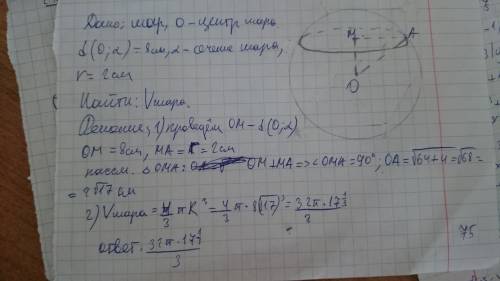 Дано: шар, О - центр шара
d(O;α) = 8см, α - сечение шара,
r = 2см
Найти: Vшара.
Решение: 1) проведём OM - d(O;α)
OM = 8см, MA = r = 2см
рассм. △OMA: OM⊥MA => ∠OMA = 90°; OA = √64+4 = √68 =
= 2√17 см
2) Vшара = 4/3 πR³ = 4/3 π · 8(√17)³ =
Ответ:
M
A
O
75